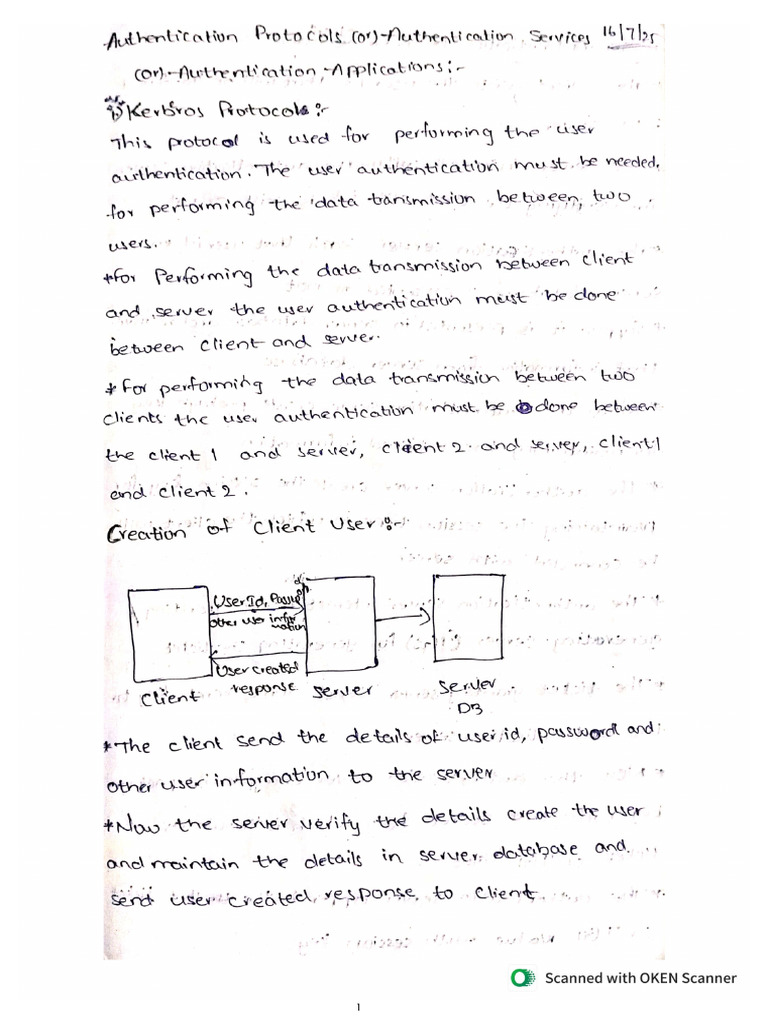 Authentication Protocols (or)-Authentication Services 16/7/25
(or)-Authentication-Applications:-
i) Kerbros Protocols:-
This protocol is used for performing the user
authentication. The user authentication must be needed
for performing the data transmission between two
users.
*For Performing the data transmission between client
and server the user authentication must be done
between client and server.
*For performing the data transmission between two
clients the user authentication must be done between
the client 1 and server, client 2 and server, client 1
and client 2.
Creation of Client User:-
User Id, Password
other user information
User created
response
Client
Server
Server
DB
*The client send the details of user id, password and
other user information to the server
*Now the server verify the details create the user
and maintain the details in server database and
send user created response to client
Scanned with OKEN Scanner
1